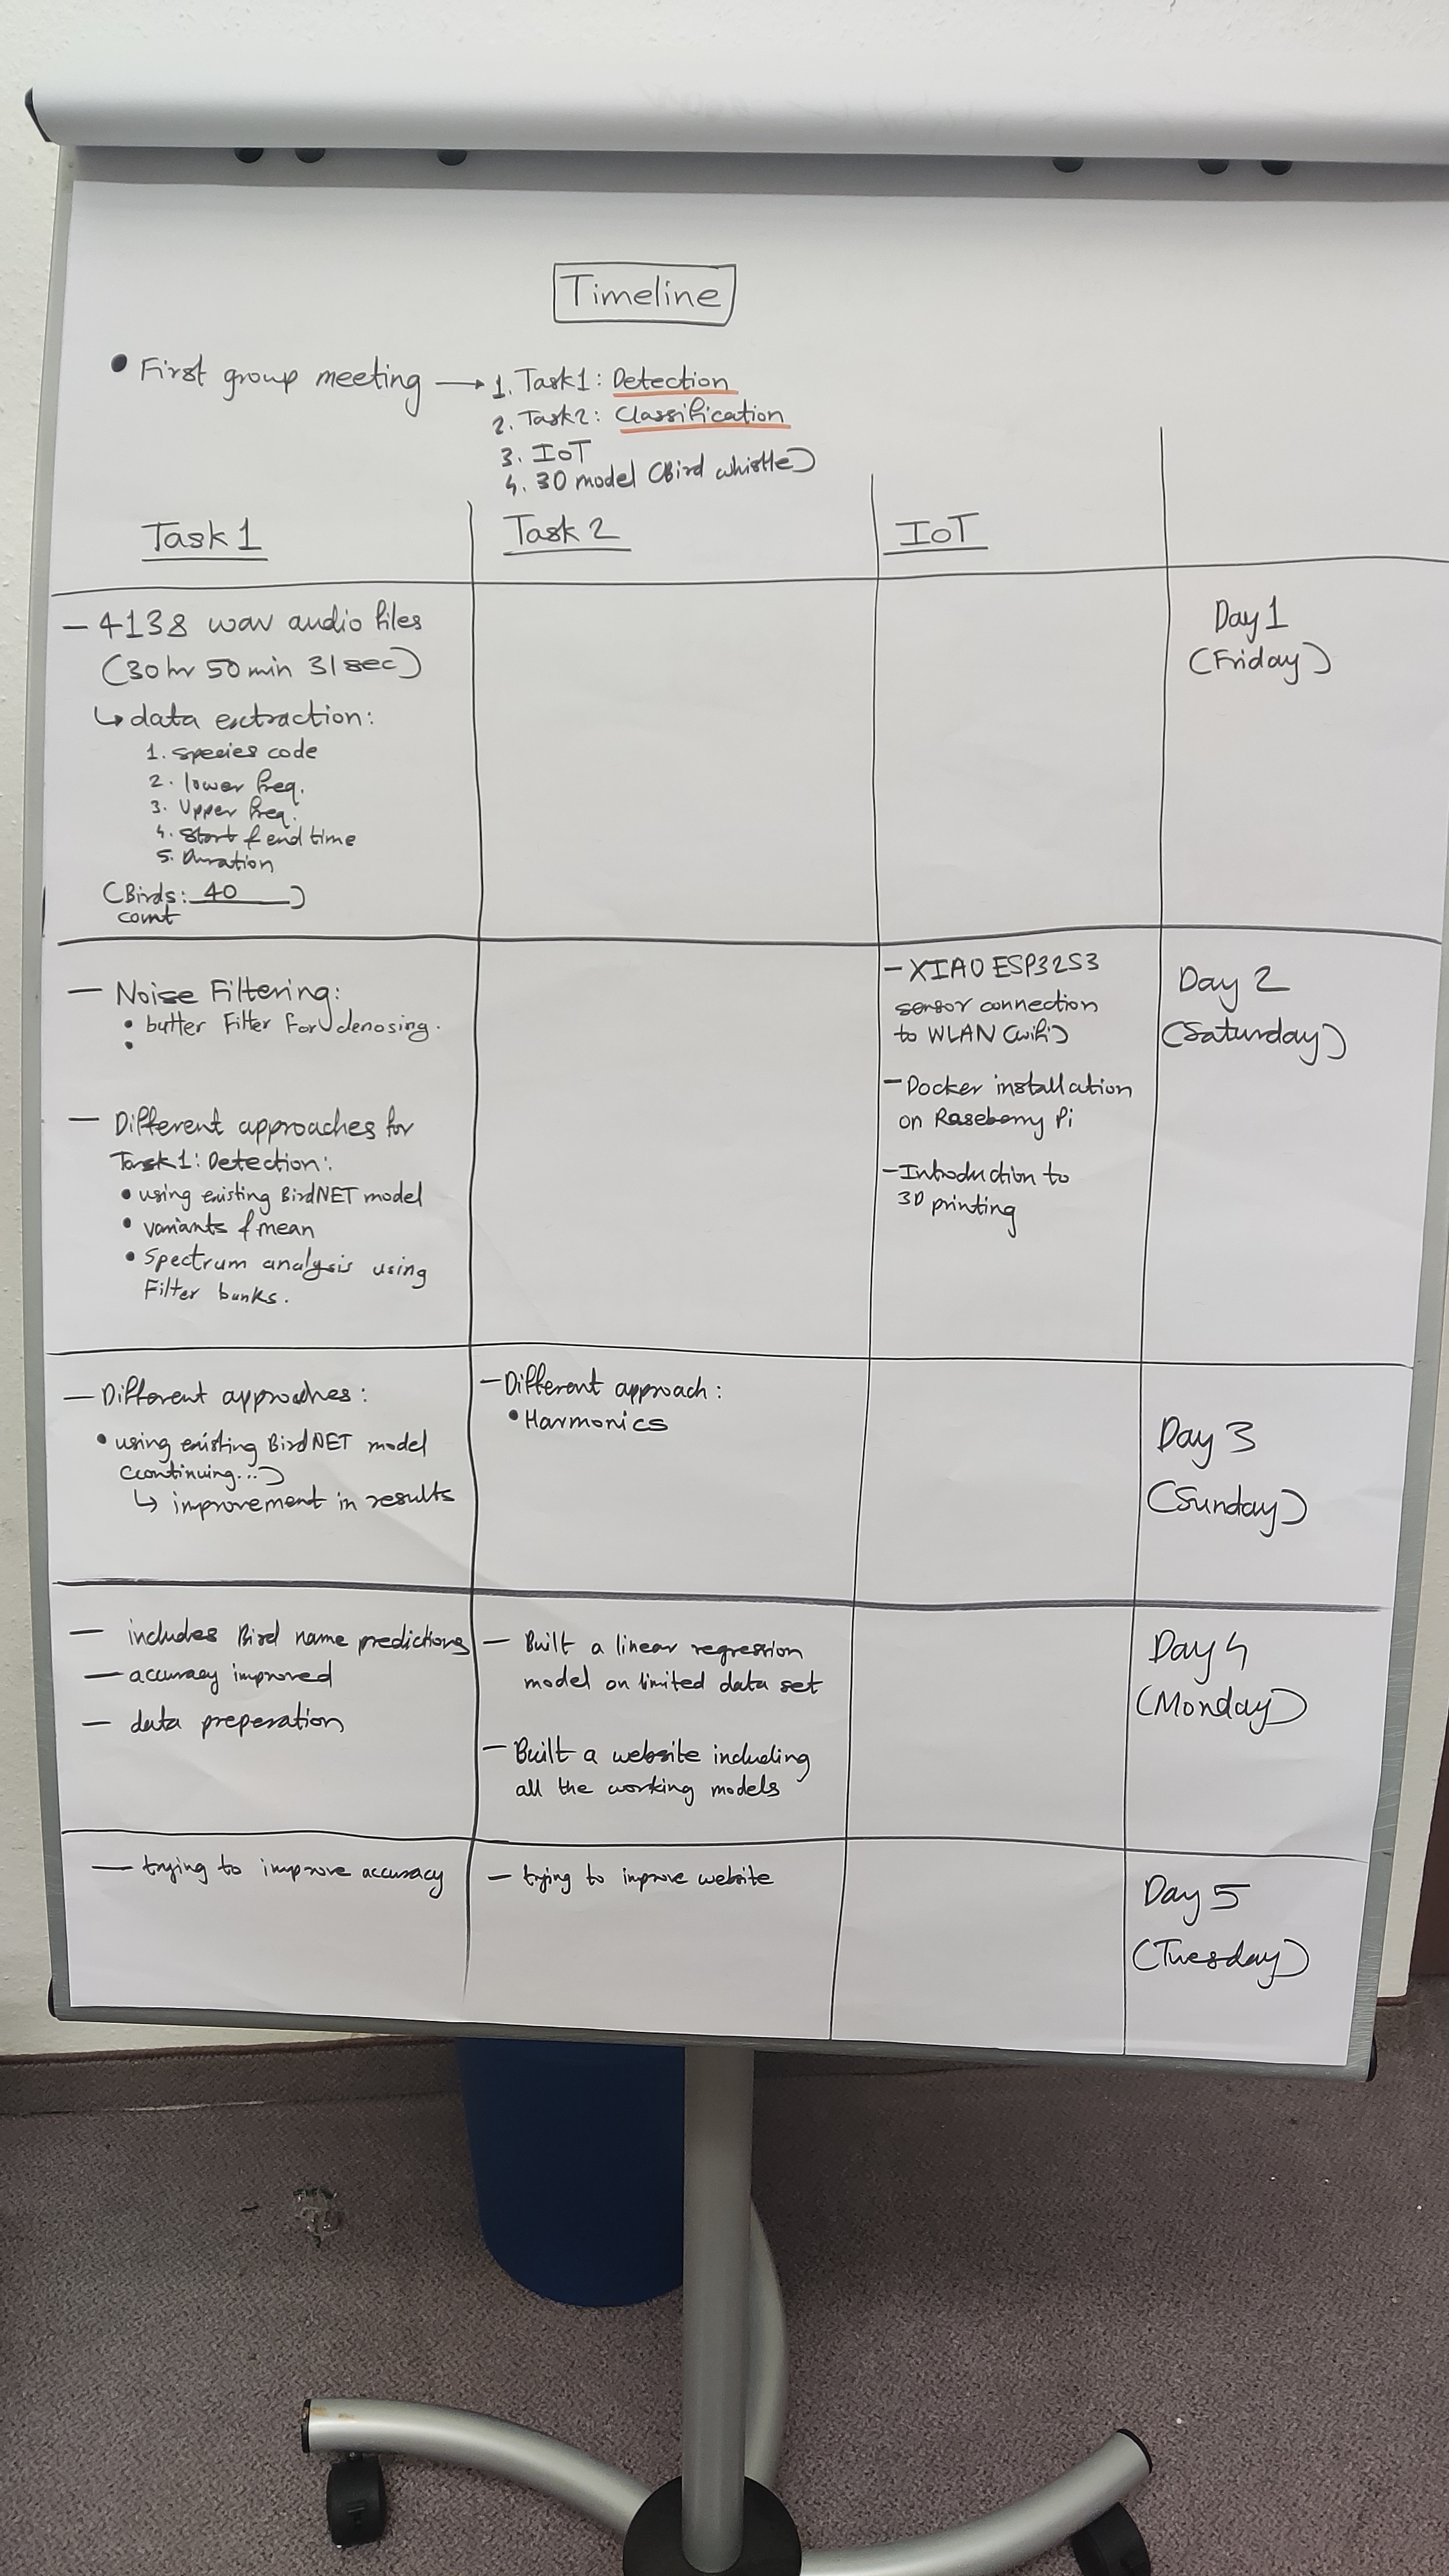 Timeline
• First group meeting → 1. Task1: Detection
2. Task2: Classification
3. IoT
4. 3D model (Bird whistle)
Task 1
Task 2
IoT
— 4138 wav audio files
(30 hr 50 min 31 sec)
↳ data extraction:
1. species code
2. lower freq.
3. Upper freq.
4. Start & end time
5. Duration
(Birds: 40)
count
Day 1
(Friday)
— Noise Filtering:
• butter Filter for denosing.
•
— Different approaches for
Task1: Detection:
• using existing BirdNET model
• variants & mean
• Spectrum analysis using
Filter banks.
– XIAO ESP32S3
sensor connection
to WLAN (wifi)
– Docker installation
on Raseberry Pi
– Introduction to
3D printing
Day 2
(Saturday)
— Different approaches:
• using existing BirdNET model
(continuing...)
↳ improvement in results
– Different approach:
• Harmonics
Day 3
(Sunday)
— includes Bird name predictions
— accuracy improved
— data preperation
– Built a linear regression
model on limited data set
– Built a website including
all the working models
Day 4
(Monday)
— trying to improve accuracy
– trying to improve website
Day 5
(Tuesday)